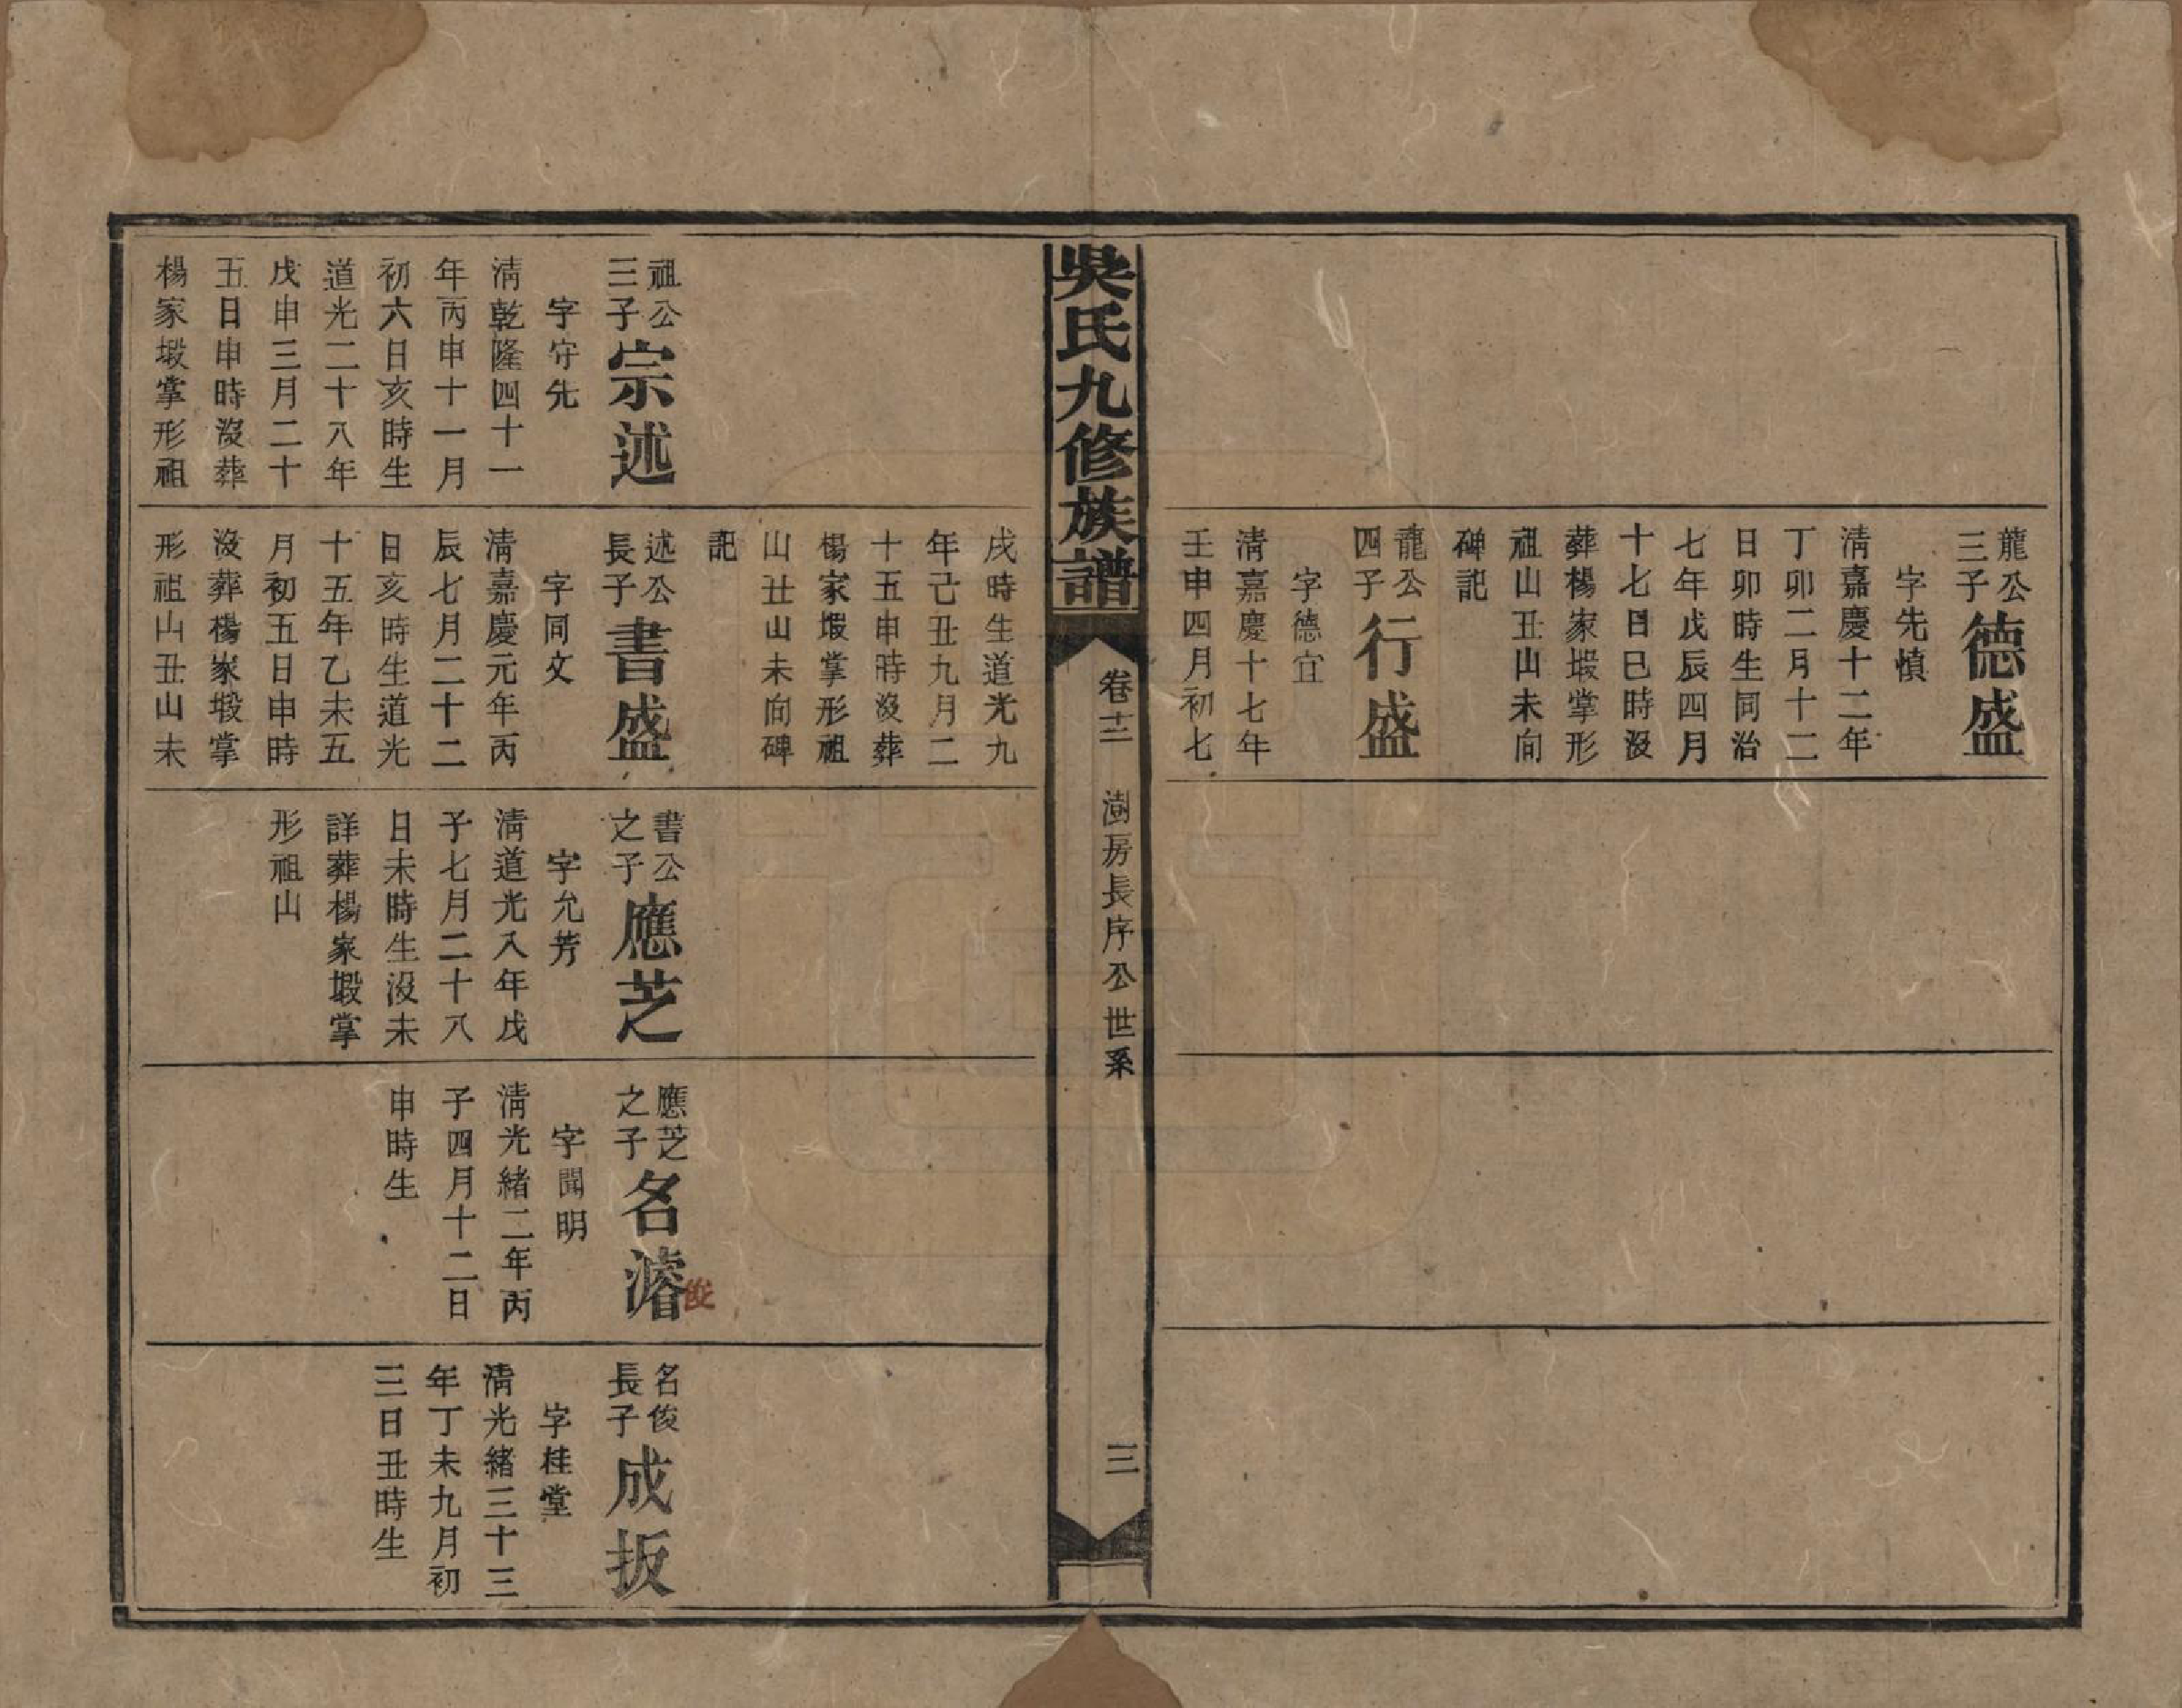 龍公
三子
德盛
字先慎
清嘉慶十二年
丁卯二月十二
日卯時生同治
七年戊辰四月
十七日巳時沒
葬楊家塅掌形
祖山丑山未向
碑記
龍公
四子
行盛
字德宜
清嘉慶十七年
壬申四月初七
吳氏九修族譜
卷十二
澍房長序公世系
三
戌時生道光九
年己丑九月二
十五申時沒葬
楊家塅掌形祖
山丑山未向碑
記
祖公
三子
宗述
字守先
清乾隆四十一
年丙申十一月
初六日亥時生
道光二十八年
戊申三月二十
五日申時沒葬
楊家塅掌形祖
述公
長子
書盛
字同文
清嘉慶元年丙
辰七月二十二
日亥時生道光
十五年乙未五
月初五日申時
沒葬楊家塅掌
形祖山丑山未
書公
之子
應芝
字允芳
清道光入年戊
子七月二十八
日未時生沒未
詳葬楊家塅掌
形祖山
應芝
之子
名濬
俊
字聞明
清光緒二年丙
子四月十二日
申時生
名俊
長子
成扳
字桂堂
清光緒三十三
年丁未九月初
三日丑時生